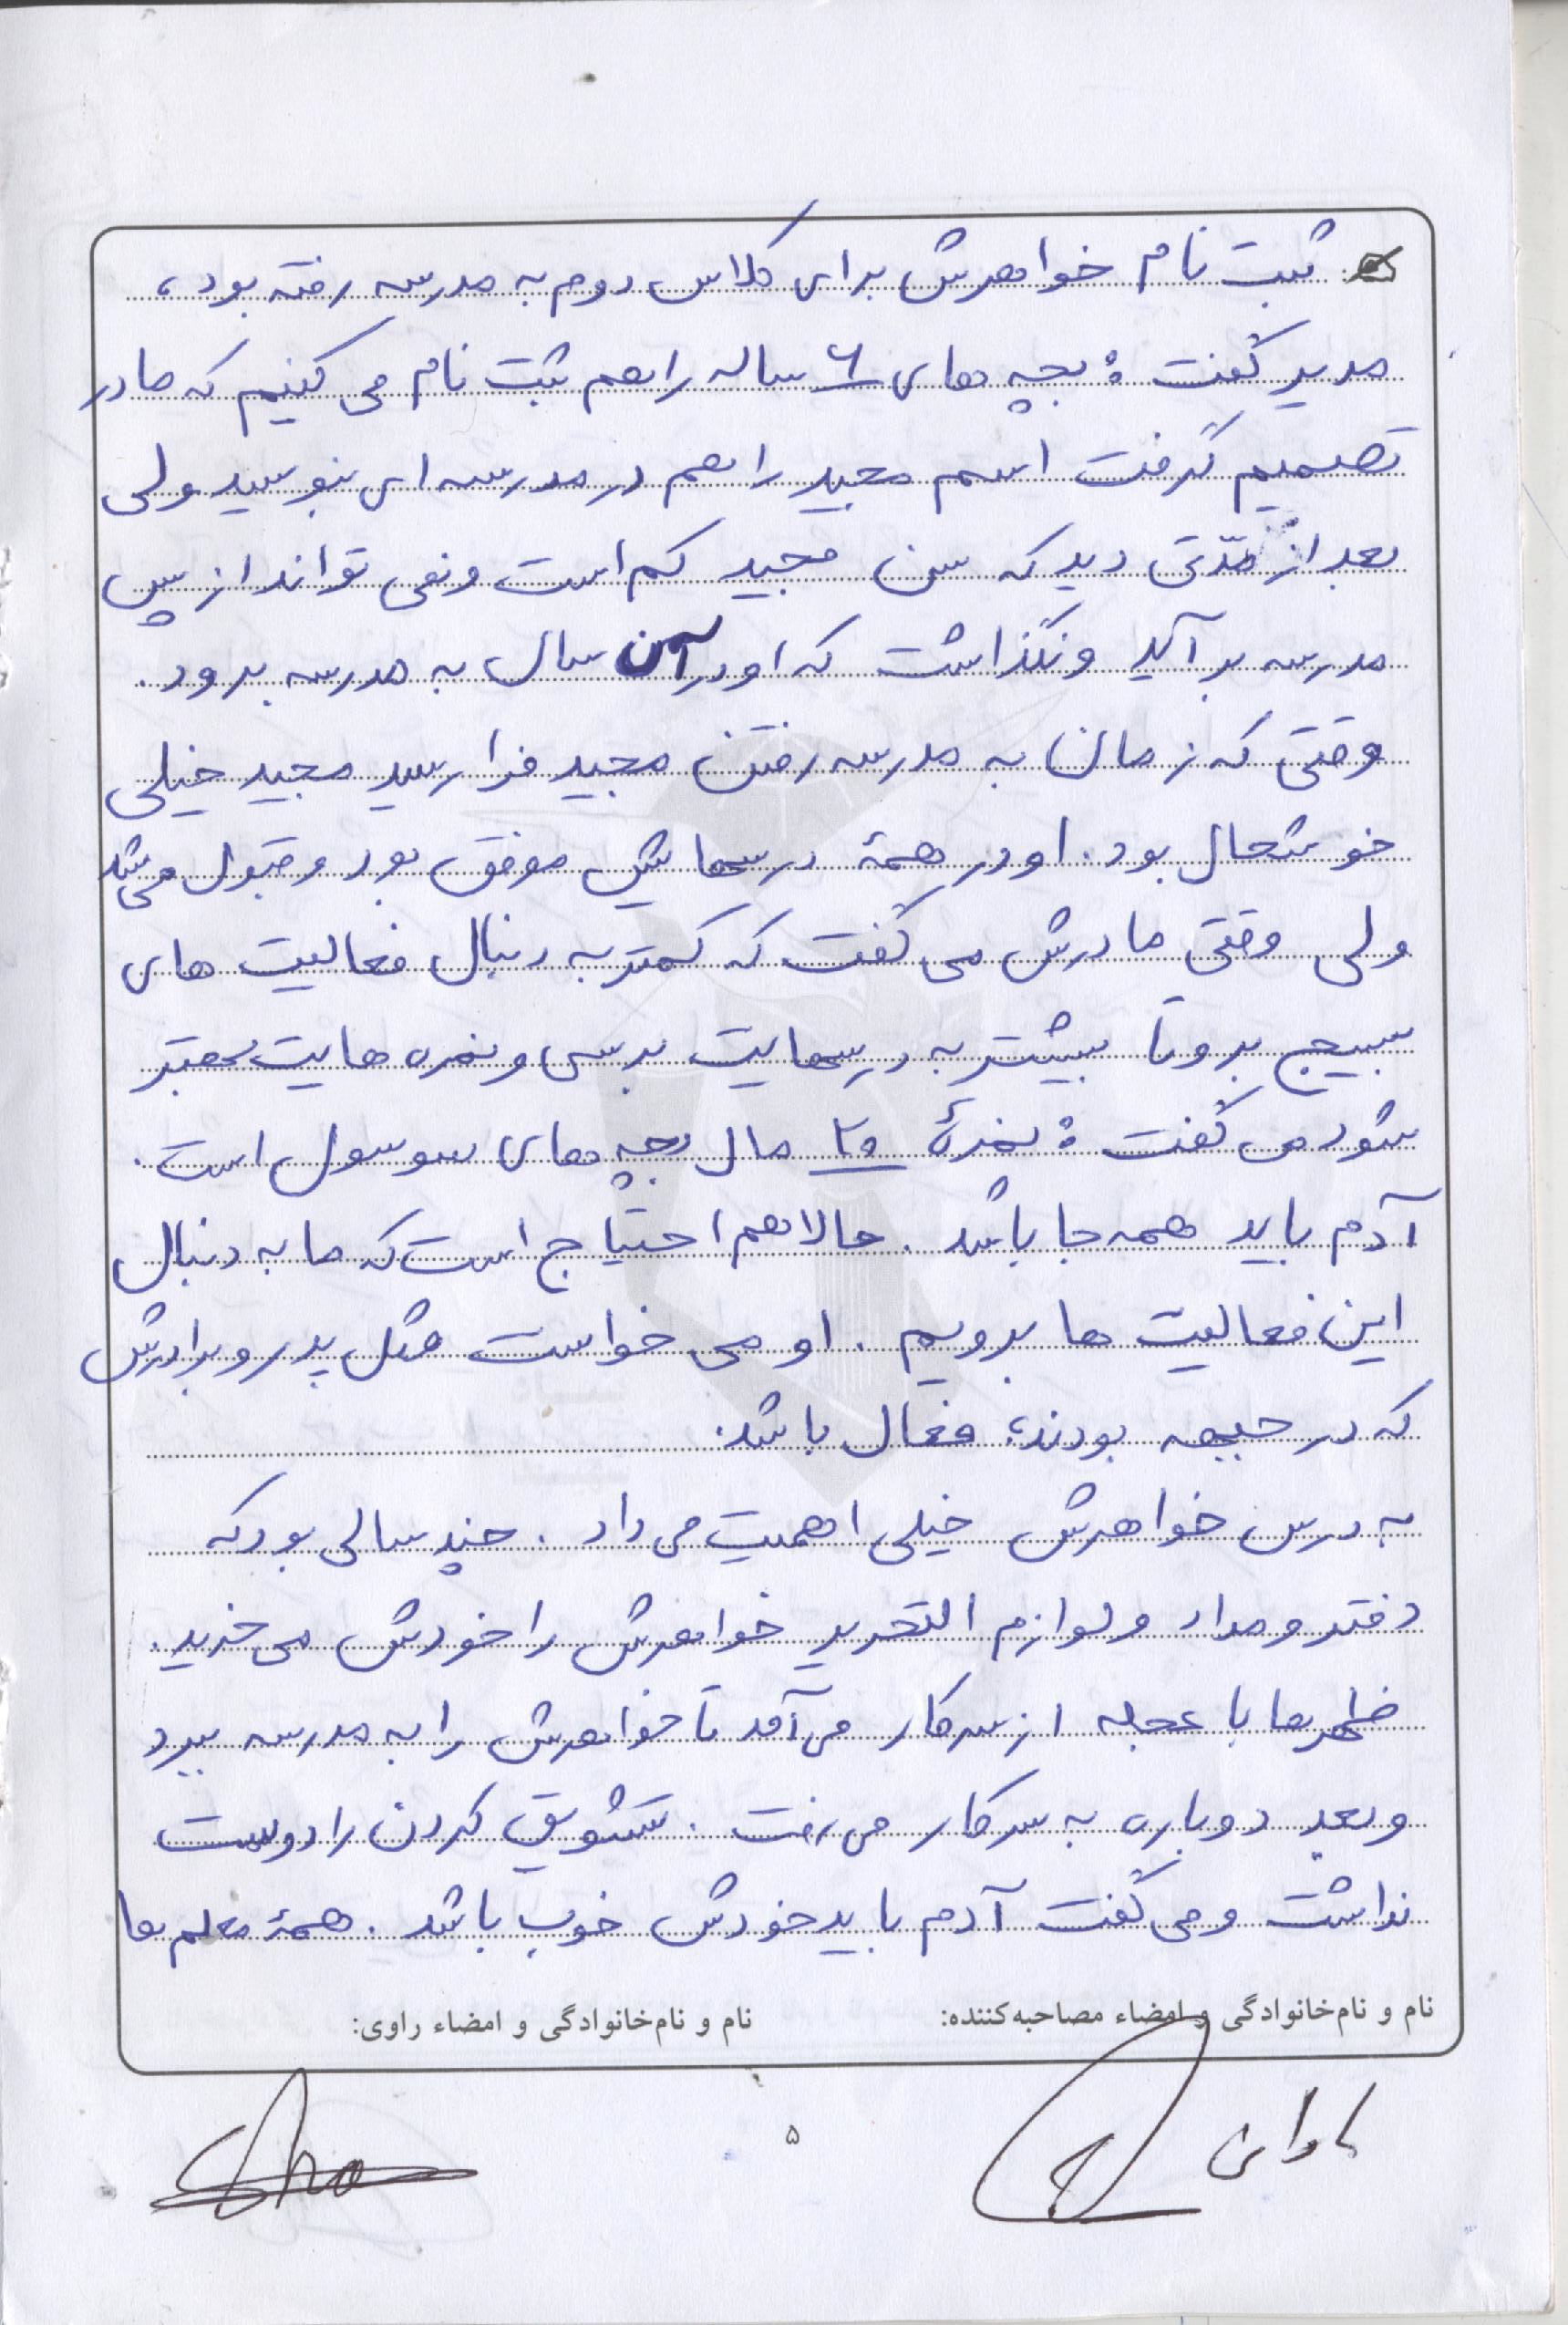 ثبت نام خواهرش برای کلاس دوم به مدرسه رفته بود،
مدیر گفت: بچه های ۶ ساله را هم ثبت نام می کنیم که مادر
تصمیم گرفت اسم مجید را هم در مدرسه ای بنویسد ولی
بعد از مدّتی دید که سن مجید کم است و نمی تواند از پس
مدرسه بر آید و نگذاشت که او در آن سال به مدرسه برود.
وقتی که زمان به مدرسه رفتن مجید فرا رسید مجید خیلی
خوشحال بود. او در همهٔ درسهایش موفق بود و قبول می شد
ولی وقتی مادرش می گفت که کمتر به دنبال فعالیت های
بسیج برو تا بیشتر به درسهایت برسی و نمره هایت بهتر
شود می گفت: نمرهٔ ۲۰ مال بچه های سوسول است.
آدم باید همه جا باشد. حالا هم احتیاج است که ما به دنبال
این فعالیت ها برویم. او می خواست مثل پدر و برادرش
که در جبهه بودند، فعال باشد.
به درس خواهرش خیلی اهمیت می داد. چند سالی بود که
دفتر و مداد و لوازم التحریر خواهرش را خودش می خرید.
ظهرها با عجله از سر کار می آمد تا خواهرش را به مدرسه ببرد
و بعد دوباره به سر کار می رفت. تشویق کردن را دوست
نداشت و می گفت آدم باید خودش خوب باشد. همهٔ معلم ها
نام و نام‌خانوادگی و امضاء مصاحبه‌کننده: نام و نام‌خانوادگی و امضاء راوی:
۵